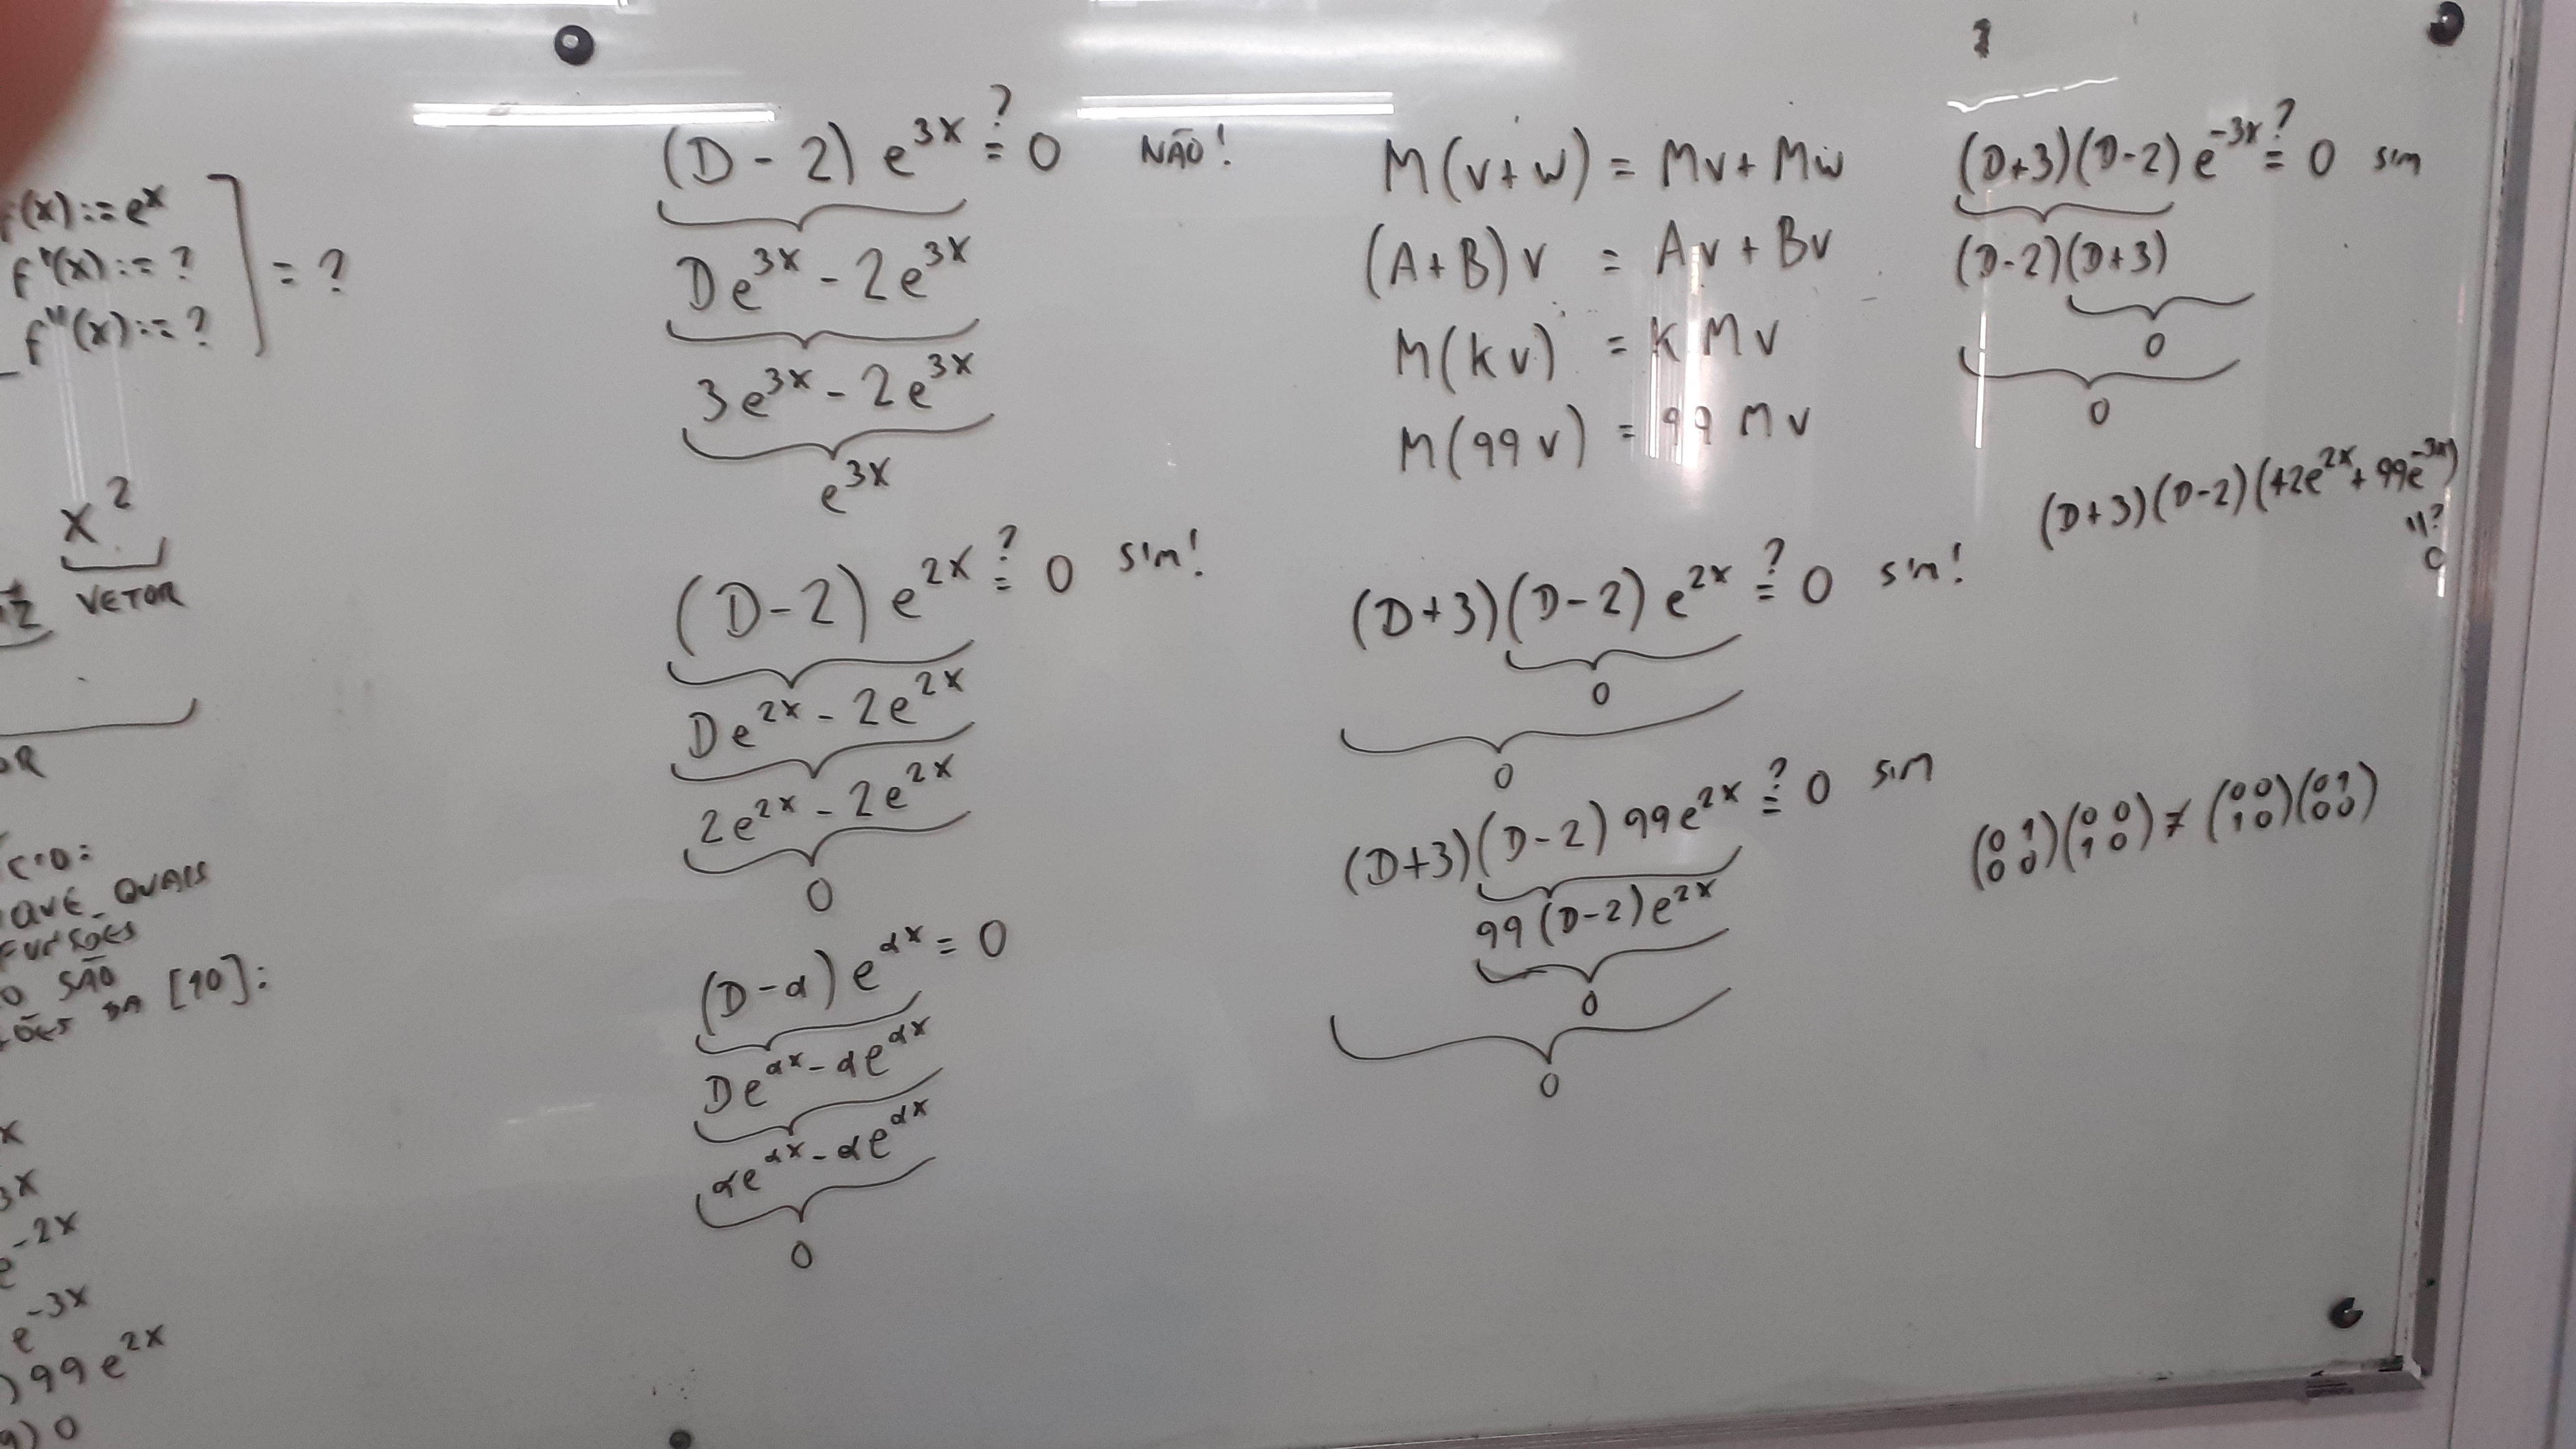 (x) := e^x
f'(x) := ?
f''(x) := ?
] = ?
x^2
VETOR
OR
QUAIS
SÃO
[10]:
x
3x
e^{-2x}
e^{-3x}
) 99 e^{2x}
) 0
(D - 2) e^{3x} ?= 0 NÃO!
D e^{3x} - 2e^{3x}
3e^{3x} - 2e^{3x}
e^{3x}
(D - 2) e^{2x} ?= 0 SIM!
D e^{2x} - 2e^{2x}
2e^{2x} - 2e^{2x}
0
(D - α) e^{αx} = 0
D e^{αx} - αe^{αx}
αe^{αx} - αe^{αx}
0
M(v+w) = Mv + Mw
(A+B)v = Av + Bv
M(kv) = k Mv
M(99v) = 99 Mv
(D+3)(D-2) e^{2x} ?= 0 SIM!
0
0
(D+3)(D-2) 99e^{2x} ?= 0 SIM
99(D-2)e^{2x}
0
0
(D+3)(D-2) e^{-3x} ?= 0 SIM
(D-2)(D+3)
0
0
(D+3)(D-2)(42e^{2x} + 99e^{-3x})
=?
0
(0 1; 0 0)(0 0; 1 0) ≠ (0 0; 1 0)(0 1; 0 0)